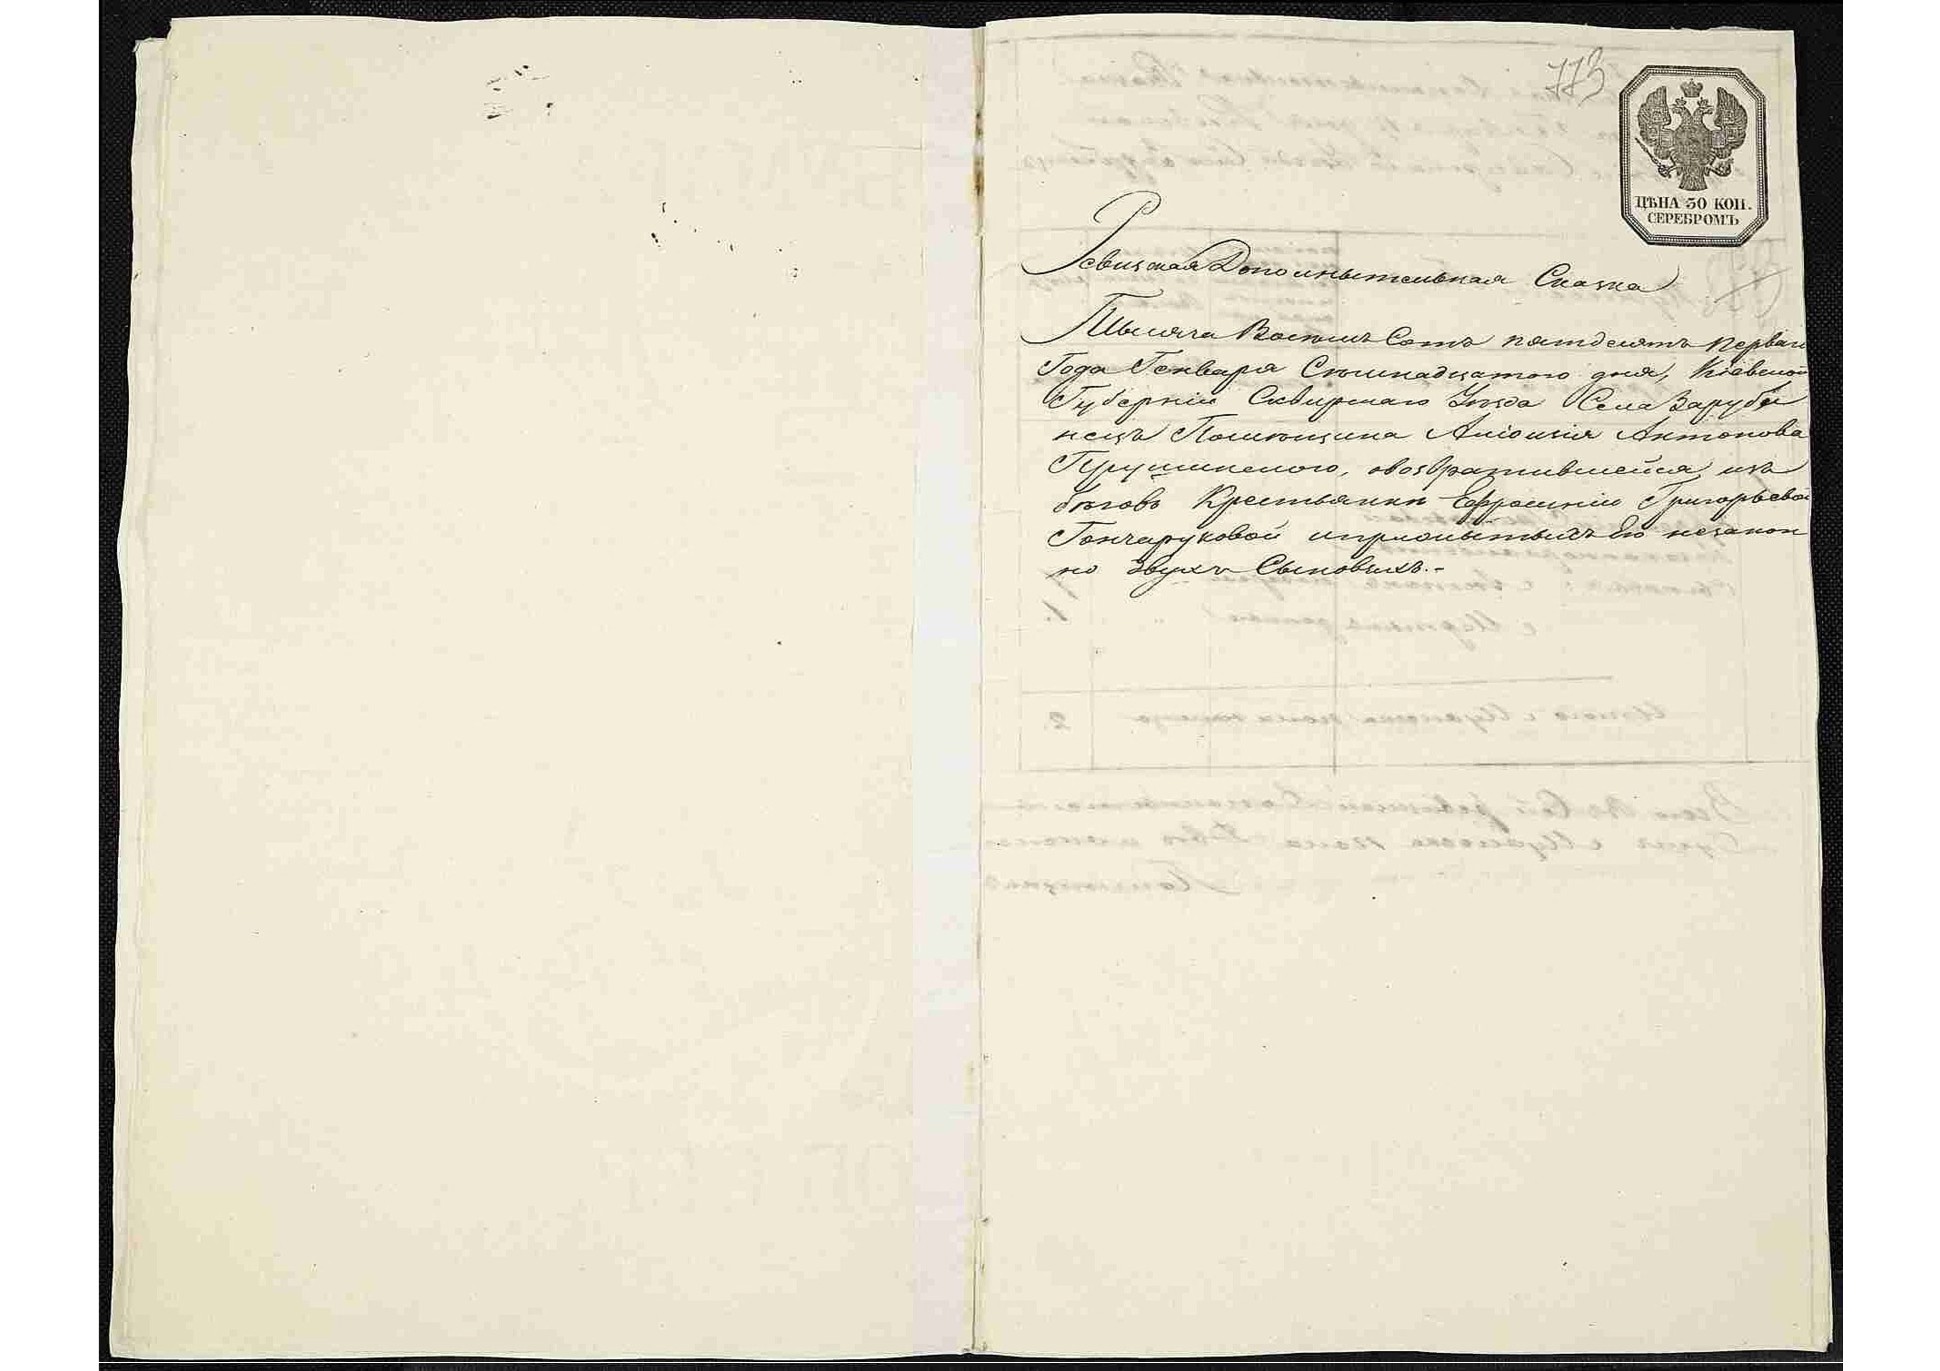 773
ЦѢНА 30 КОП.
СЕРЕБРОМЪ
Ревизская Дополнытельная Сказка
Тысяча Восемъ Сотъ пятдесятъ перваго
Года Генваря Семнадцатого дня, Кіевской
Губерніи Сквирскаго Уѣзда Села Заруби
нецъ Помѣщика Алоизія Антонова
Грушинского, овозвратившейся изъ
бѣговъ Крестьянки Ефросиніи Григорьевой
Гончаруковой иприжытыхъ Ею незакон
но двухъ Сыновяхъ.-